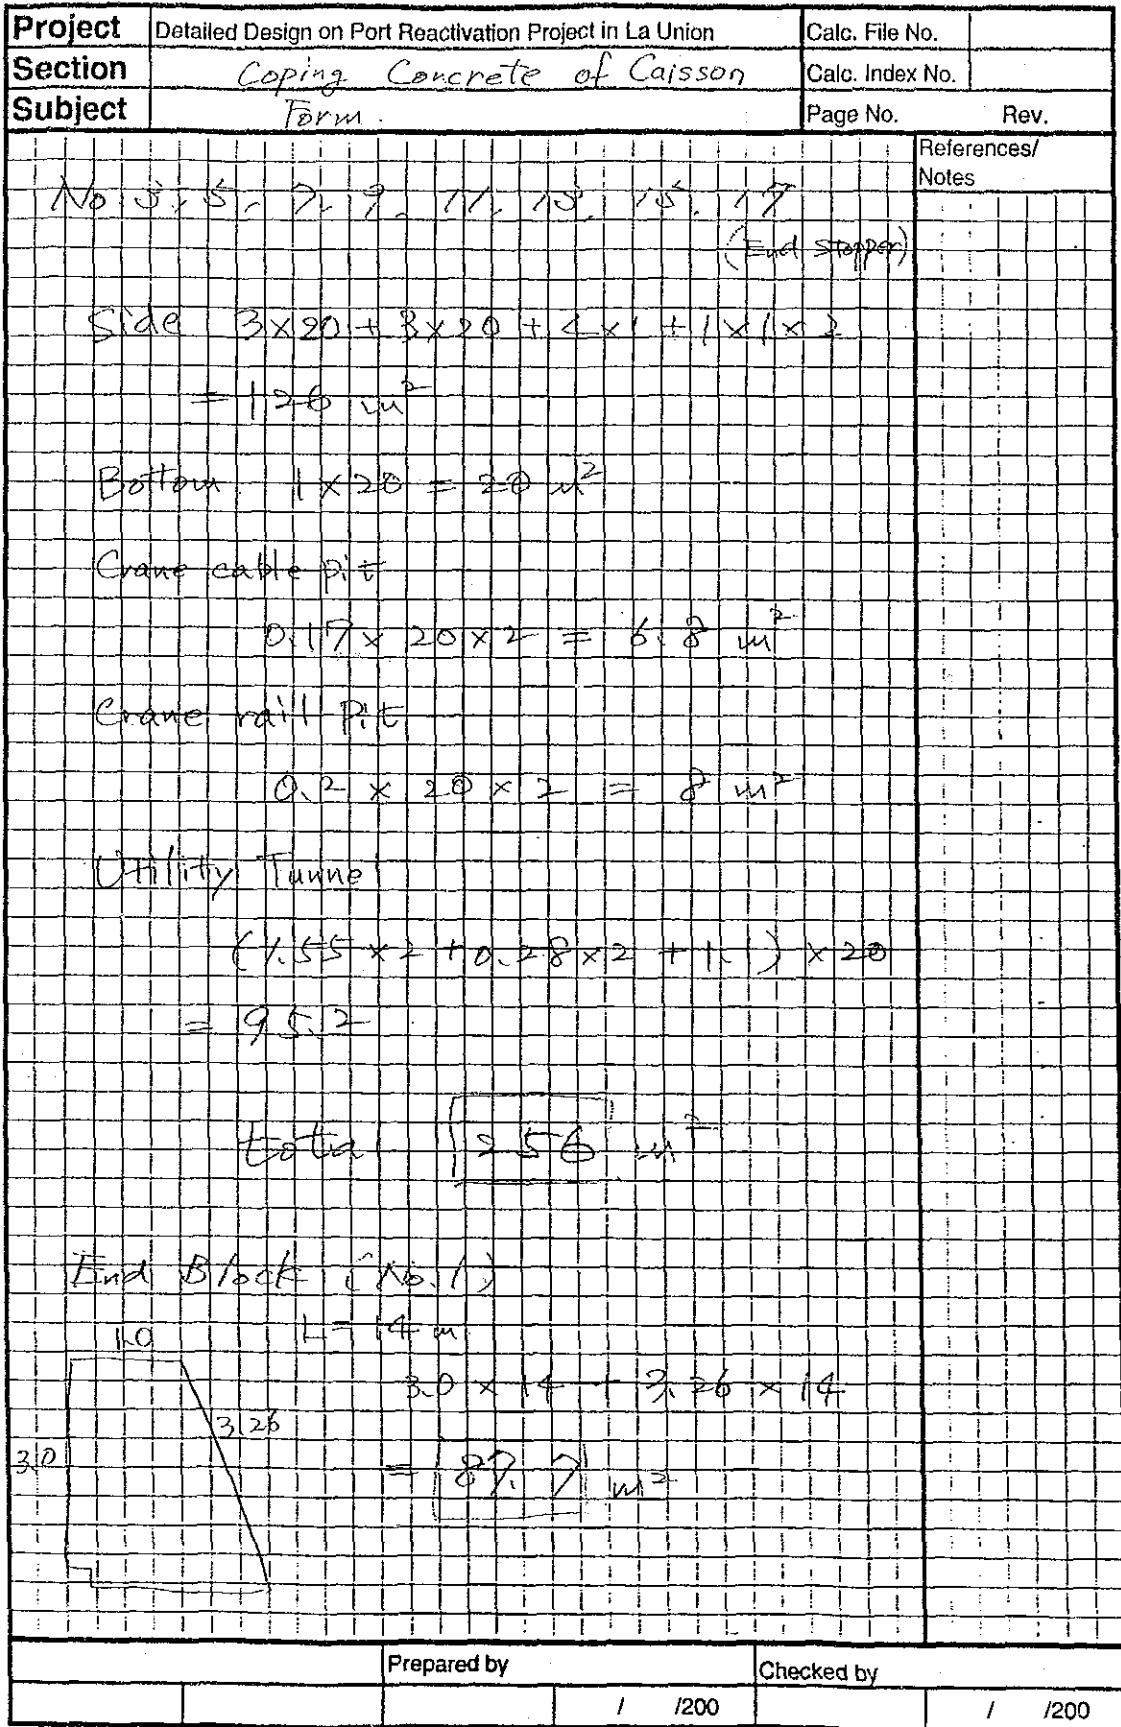 Project Detailed Design on Port Reactivation Project in La Union Calc. File No.
Section Coping Concrete of Caisson Calc. Index No.
Subject Form. Page No. Rev.
References/
Notes
No 3, 5, 7, 9, 11, 13, 15, 17
(End stopper)
Side 3×20 + 3×20 + 4×1 + 1×1×2
= 126 m²
Bottom 1×20 = 20 m²
Crane cable pit
0.17 × 20 × 2 = 6.8 m²
Crane raill Pit
0.2 × 20 × 2 = 8 m²
Utility Tunnel
(1.55 × 2 + 0.28 × 2 + 1.1) × 20
= 95.2
total 256 m²
End Block (No.1)
1.0 L = 14 m
3.0 × 14 + 3.26 × 14
3.26
3.0
= 87.7 m²
Prepared by Checked by
/ /200 / /200